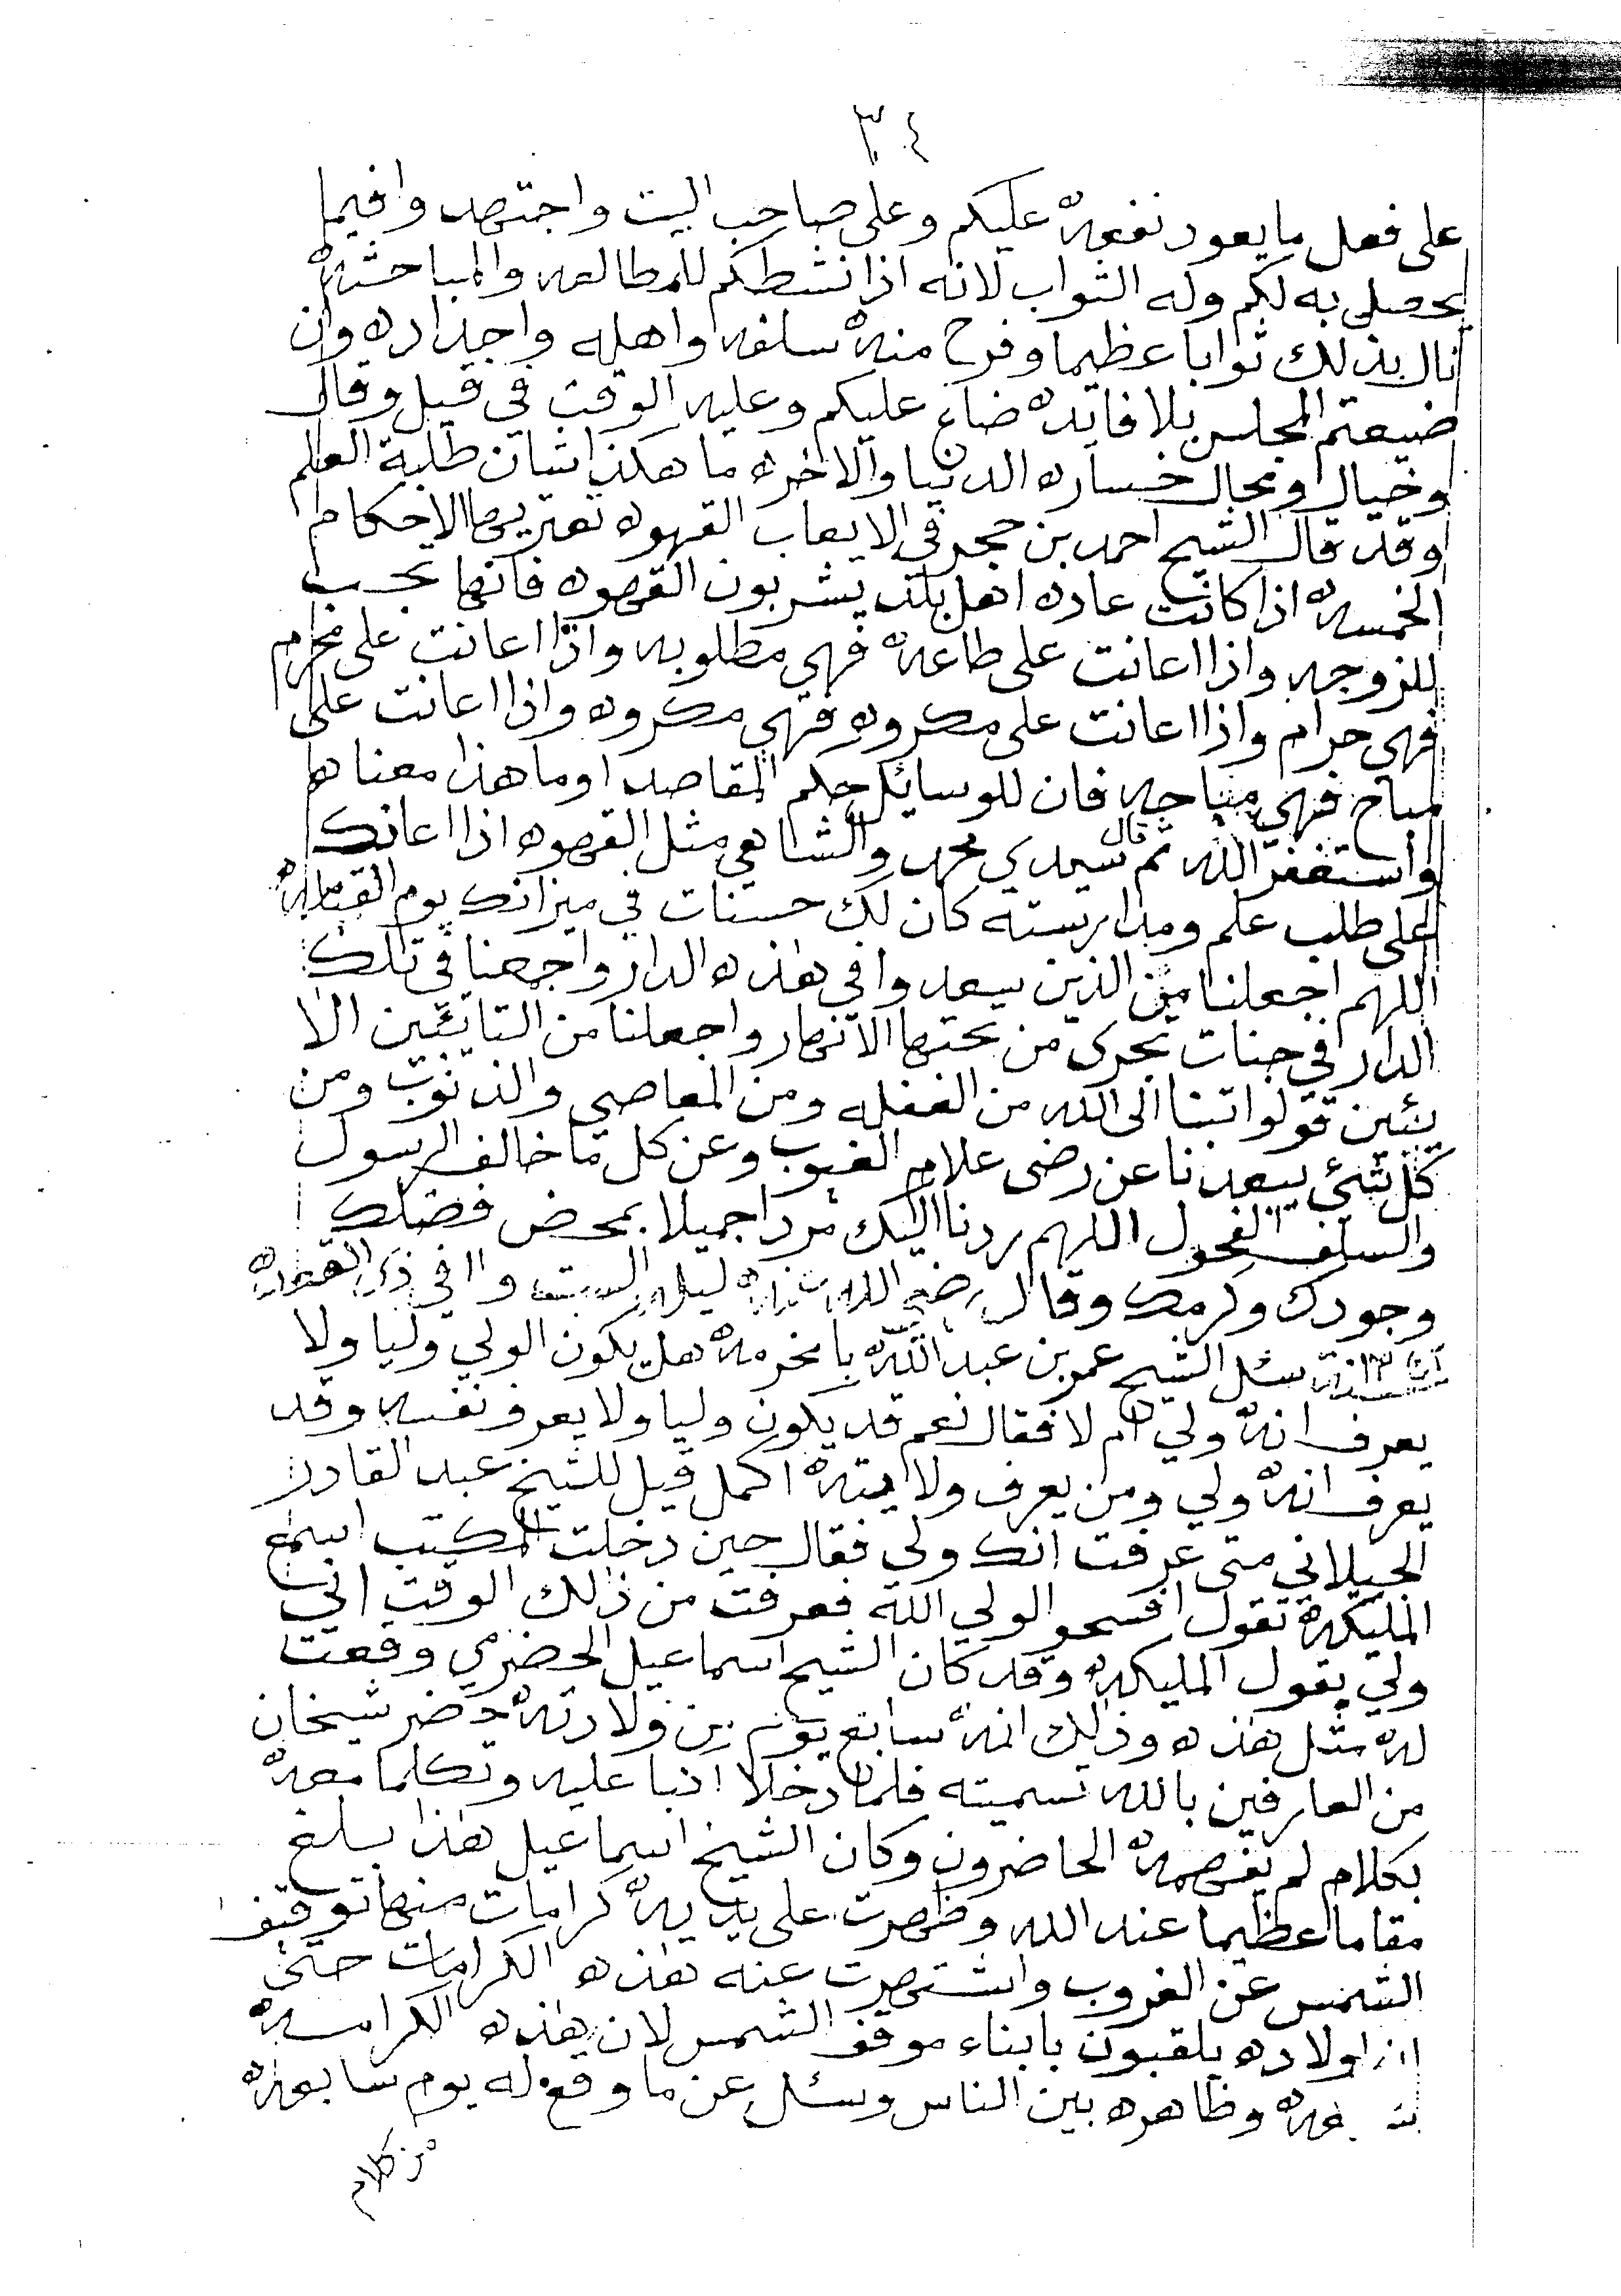 ٣٤
على فعل ما يعود نفعه عليكم وعلى صاحب البيت واجتهدوا فيما
يحصل به لكم وله الثواب لانه اذا نشطكم للمطالعه والمباحثه
نال بذلك ثوابا عظيما وفرح منه سلفه واهله واجداده وان
ضيعتم المجلس بلا فايده ضاع عليكم وعليه الوقت في قيل وقال
وخيال ومحال خساره الدنيا والاخره ما هكذا شان طلبة العلم
وقد قال الشيخ احمد بن حجر في الايعاب القهوه تعتريها الاحكام
الخمسه اذا كانت عاده اهل بلد يشربون القهوه فانها تجب
للزوجه واذا اعانت على طاعه فهي مطلوبه واذا اعانت على محرم
فهي حرام واذا اعانت على مكروه فهي مكروه واذا اعانت على
مباح فهي مباحه فان للوسايل حكم المقاصد او ما هذا معناها
واستغفر الله ثم قال سيدي محمد والشاهي مثل القهوه اذا اعانك
على طلب علم ومدارسته كان لك حسنات في ميزانك يوم القيامه
اللهم اجعلنا من الذين سعدوا في هذه الدار واجمعنا في تلك
الدار في جنات تجرى من تحتها الانهار واجعلنا من التائبين الا
يئبين قولوا تبنا الى الله من الغفله ومن المعاصي والذنوب ومن
كل شئ يبعدنا عن رضى علام الغيوب وعن كل ما خالف الرسول
والسلف الفحول اللهم ردنا اليك مردا جميلا بمحض فضلك
وجودك وكرمك وقال رضي الله عنه ليله السبت و١١ في ذي القعده
سنة سئل الشيخ عمر بن عبد الله بامخرمه هل يكون الولي وليا ولا
يعرف انه ولي ام لا فقال نعم قد يكون وليا ولا يعرف نفسه وقد
يعرف انه ولي ومن يعرف ولايته اكمل قيل للشيخ عبد القادر
الجيلاني متى عرفت انك ولي فقال حين دخلت المكتب اسمع
المليكه تقول افسحو الولي الله فعرفت من ذلك الوقت اني
ولي بقول المليكه وقد كان الشيخ اسماعيل الحضرمي وقعت
له مثل هذه وذلك انه سابع يوم من ولادته حضر شيخان
من العارفين بالله تسميته فلما دخلا اذنبا عليه وتكلما معه
بكلام لم يفهمه الحاضرون وكان الشيخ اسماعيل هذا بلغ
مقاما عظيما عند الله وظهرت على يديه كرامات منها توقيف
الشمس عن الغروب واشتهرت عنه هذه الكرامات حتى
ان اولاده يلقبون بابناء موقف الشمس لان هذه الكرامه
وظاهره بين الناس وسئل عن ما وقع له يوم سابعه
من كلام